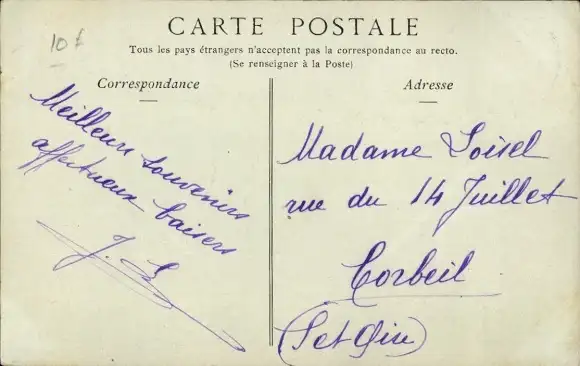 10 f
CARTE POSTALE
Tous les pays étrangers n'acceptent pas la correspondance au recto.
(Se renseigner à la Poste)
Correspondance
Meilleurs souvenirs
affectueux baisers
J. L
Adresse
Madame Loisel
rue du 14 Juillet
Corbeil
(S et Oise)